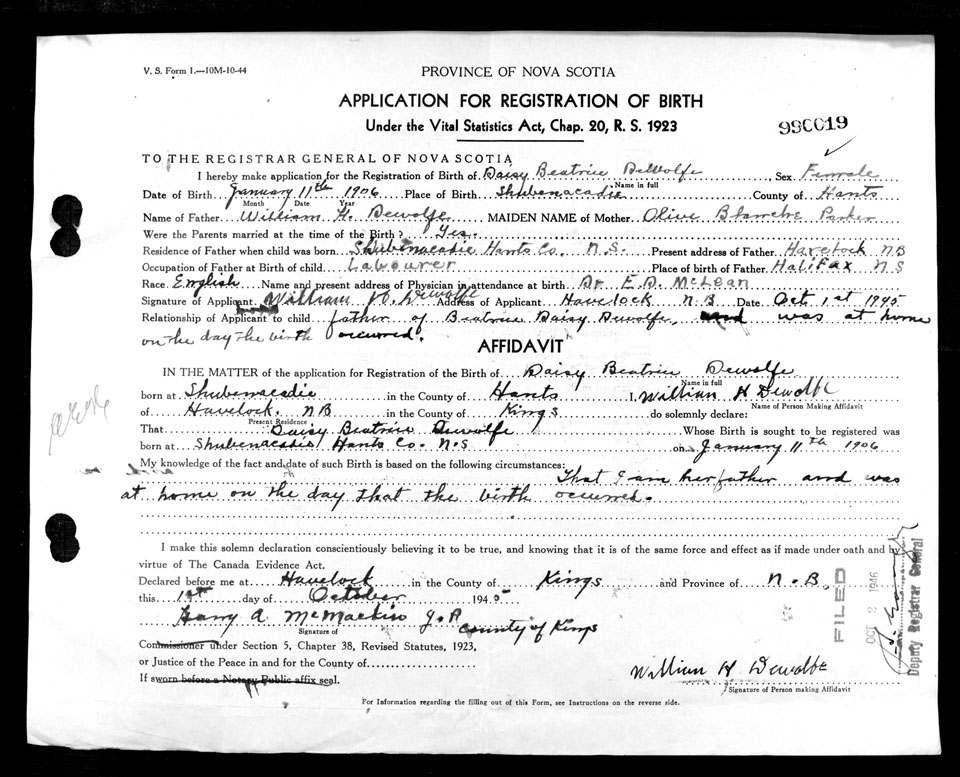 V. S. Form 1.—10M-10-44
PROVINCE OF NOVA SCOTIA
APPLICATION FOR REGISTRATION OF BIRTH
Under the Vital Statistics Act, Chap. 20, R. S. 1923
990019
TO THE REGISTRAR GENERAL OF NOVA SCOTIA
I hereby make application for the Registration of Birth of Daisy Beatrice DeWolfe, Sex Female
Name in full
Date of Birth January 11th 1906 Place of Birth Shubenacadie County of Hants
Month Date Year
Name of Father William H. Dewolfe MAIDEN NAME of Mother Olive Blanche Parker
Were the Parents married at the time of the Birth? Yes.
Residence of Father when child was born Shubenacadie Hants Co. N.S. Present address of Father Havelock NB
Occupation of Father at Birth of child Labourer Place of birth of Father Halifax N S
Race English Name and present address of Physician in attendance at birth Dr E.D. McLean
Signature of Applicant William H. Dewolfe Address of Applicant Havelock N B Date Oct 1st 1945
Relationship of Applicant to child father of Beatrice Daisy Dewolfe, and was at home
on the day the birth occurred.
AFFIDAVIT
IN THE MATTER of the application for Registration of the Birth of Daisy Beatrice Dewolfe
Name in full
born at Shubenacadie in the County of Hants I, William H Dewolfe
Name of Person Making Affidavit
of Havelock NB in the County of Kings do solemnly declare:
Present Residence
That Daisy Beatrice Dewolfe Whose Birth is sought to be registered was
born at Shubenacadie Hants Co. N.S on January 11th 1906
My knowledge of the fact and date of such Birth is based on the following circumstances:
That I am her father and was
at home on the day that the birth occurred.
I make this solemn declaration conscientiously believing it to be true, and knowing that it is of the same force and effect as if made under oath and by
virtue of The Canada Evidence Act.
Declared before me at Havelock in the County of Kings and Province of N.B.
this 1st day of October 1945
Harry A McMackin J.P
County of Kings
Signature of
Commissioner under Section 5, Chapter 38, Revised Statutes, 1923,
or Justice of the Peace in and for the County of
If sworn before a Notary Public affix seal.
William H Dewolfe
Signature of Person making Affidavit
For Information regarding the filling out of this Form, see Instructions on the reverse side.
FILED
OCT 2 1946
Deputy Registrar General